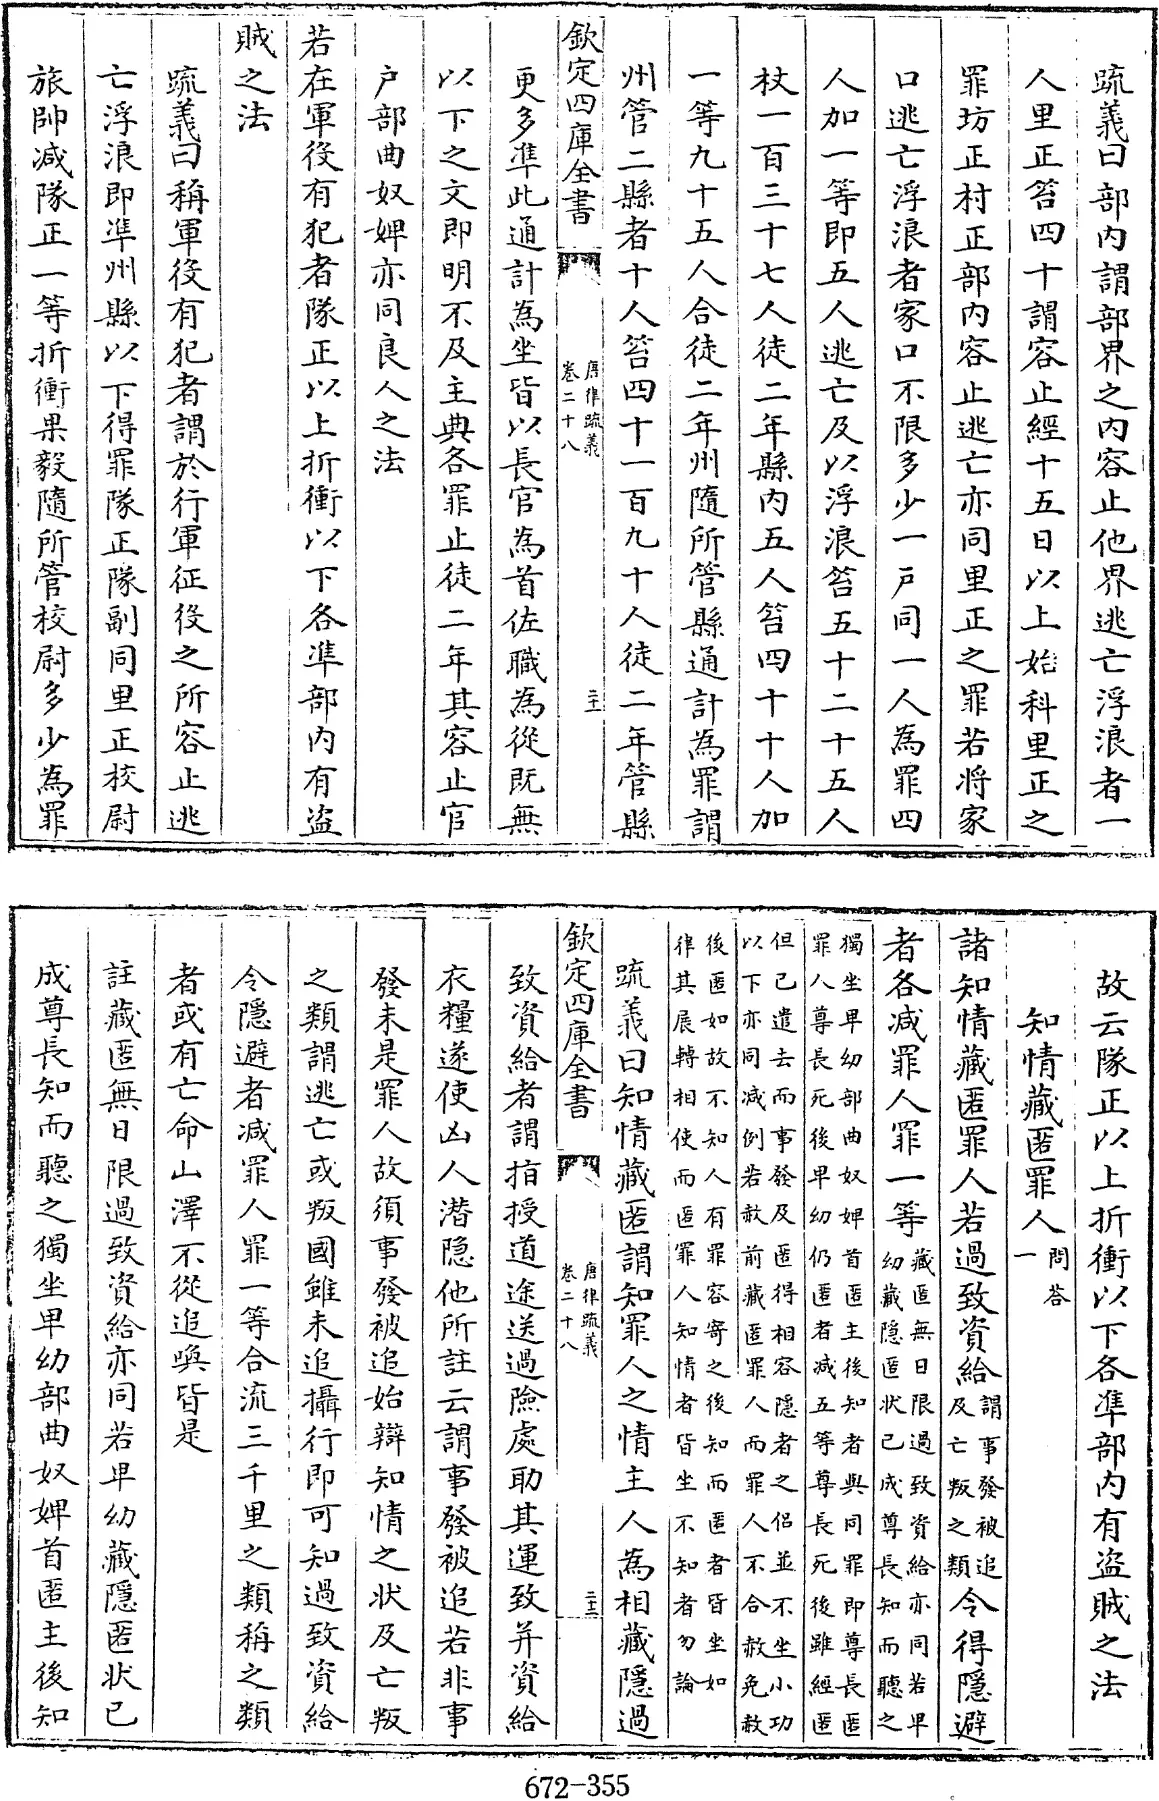 疏義曰部内謂部界之内容止他界逃亡浮浪者一
人里正笞四十謂容止經十五日以上始科里正之
罪坊正村正部内容止逃亡亦同里正之罪若將家
口逃亡浮浪者家口不限多少一戸同一人為罪四
人加一等即五人逃亡及以浮浪笞五十二十五人
杖一百三十七人徒二年縣内五人笞四十十人加
一等九十五人合徒二年州隨所管縣通計為罪謂
州管二縣者十人笞四十一百九十人徒二年管縣
欽定四庫全書
唐律疏義
卷二十八
二十二
更多準此通計為坐皆以長官為首佐職為從既無
以下之文即明不及主典各罪止徒二年其容止官
戸部曲奴婢亦同良人之法
若在軍役有犯者隊正以上折衝以下各準部内有盗
賊之法
疏義曰稱軍役有犯者謂於行軍征役之所容止逃
亡浮浪即準州縣以下得罪隊正隊副同里正校尉
旅帥减隊正一等折衝果毅隨所管校尉多少為罪
故云隊正以上折衝以下各準部内有盗賊之法
知情藏匿罪人問答一
諸知情藏匿罪人若過致資給謂事發被追及亡叛之類令得隱避
者各减罪人罪一等藏匿無日限過致資給亦同若卑幼藏隱匿状已成尊長知而聽之
獨坐卑幼部曲奴婢首匿主後知者與同罪即尊長匿
罪人尊長死後卑幼仍匿者减五等尊長死後雖經匿
但已遣去而事發及匿得相容隱者之侣並不坐小功
以下亦同减例若赦前藏匿罪人而罪人不合赦免赦
後匿如故不知人有罪容寄之後知而匿者皆坐如
律其展轉相使而匿罪人知情者皆坐不知者勿論
疏義曰知情藏匿謂知罪人之情主人為相藏隱過
欽定四庫全書
唐律疏義
卷二十八
二十三
致資給者謂指授道途送過險處助其運致并資給
衣糧遂使凶人潜隐他所註云謂事發被追若非事
發未是罪人故須事發被追始辯知情之状及亡叛
之類謂逃亡或叛國雖未追攝行即可知過致資給
令隱避者减罪人罪一等合流三千里之類稱之類
者或有亡命山澤不從追喚皆是
註藏匿無日限過致資給亦同若卑幼藏隱匿状已
成尊長知而聽之獨坐卑幼部曲奴婢首匿主後知
672-355